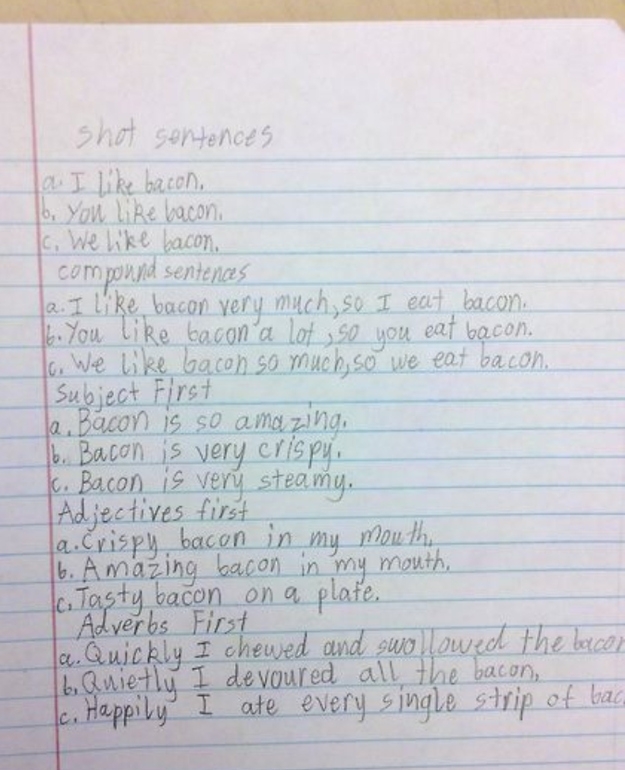 shot sentences
a. I like bacon.
b. You like bacon.
c. We like bacon.
compound sentences
a. I like bacon very much, so I eat bacon.
b. You like bacon a lot, so you eat bacon.
c. We like bacon so much, so we eat bacon.
Subject First
a. Bacon is so amazing.
b. Bacon is very crispy.
c. Bacon is very steamy.
Adjectives first
a. Crispy bacon in my mouth.
b. Amazing bacon in my mouth.
c. Tasty bacon on a plate.
Adverbs First
a. Quickly I chewed and swollowed the bacon
b. Quietly I devoured all the bacon,
c. Happily I ate every single strip of bac